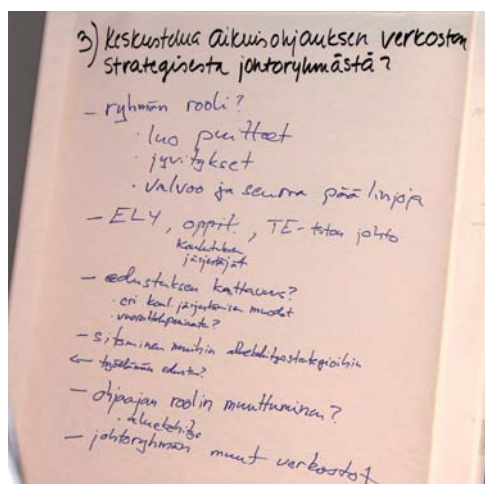 3) Keskustelua aikuisohjauksen verkoston
strategisesta johtoryhmästä?
- ryhmän rooli?
· luo puitteet
· jyvitykset
· valvoo ja seuraa päälinjoja
- ELY, oppil., TE-tston johto
koulutuksen
järjestäjät
- edustuksen kattavuus?
· eri koul. järjestämisen muodot
· vuorotteluperiaate?
- sitominen muihin aluekehitysstrategioihin
← työelämän edustus?
- ohjaajan roolin muuttuminen?
· aluekehitys
- johtoryhmän muut verkostot